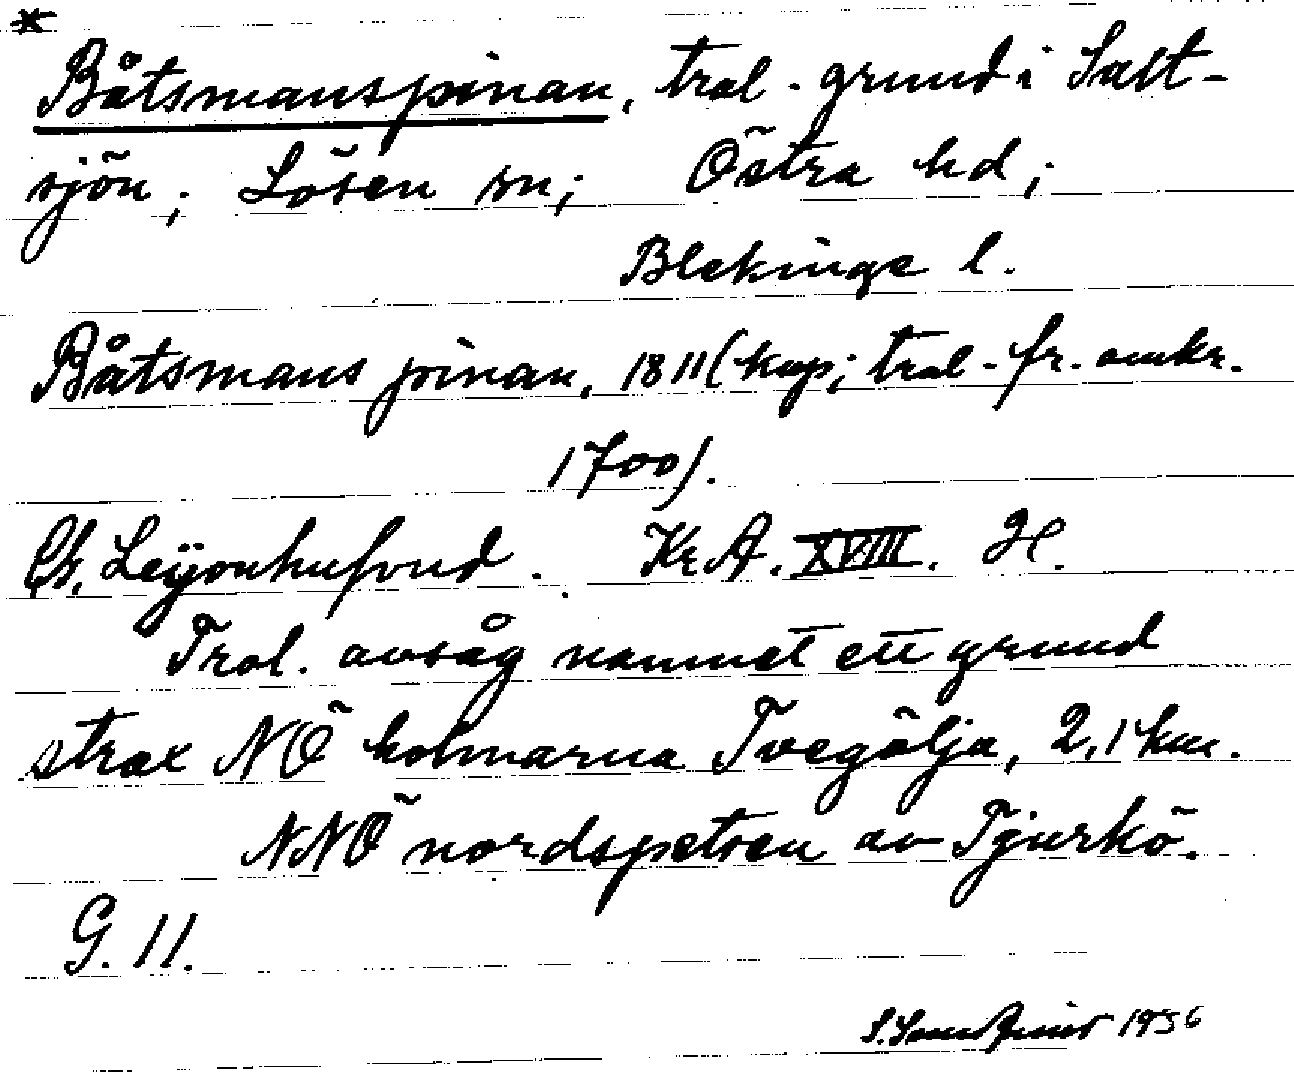 Båtsmanspinan, trol. grund i Salt-
sjön; Lösen sn; Östra hd;
Blekinge l.
Båtsmans pinan, 1811 (kop; trol. fr. omkr.
1700).
Ch. Leÿonhufvud. Kr A. XVIII. H.
Trol. avsåg namnet ett grund
strax NÖ holmarna Tvegölja, 2,1 km.
NNÖ nordspetsen av Tjurkö.
G. 11.
1956